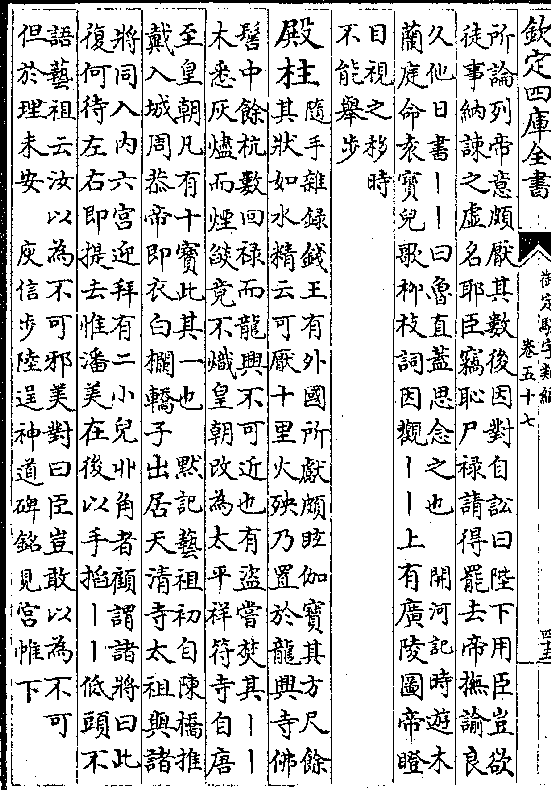 欽定四庫全書
御定駢字類編
卷五十七
所論列帝意頗厭其數後因對自訟曰陛下用臣豈欲
徒事納諫之虛名耶臣竊恥尸祿請得罷去帝撫諭良
久他日書丨丨曰魯直蓋思念之也 開河記時遊木
蘭庭命袁寶兒歌柳枝詞因觀丨丨上有廣陵圖帝瞪
目視之移時
不能舉步
殿柱 隨手雜錄錢王有外國所獻頗眩伽寶其方尺餘
其狀如水精云可厭十里火殃乃置於龍興寺佛
髻中餘杭數回祿而龍興不可近也有盜嘗焚其丨丨
木悉灰燼而煙燄竟不熾皇朝改為太平祥符寺自唐
至皇朝凡有十寶此其一也 默記藝祖初自陳橋推
戴入城周恭帝即衣白襴轎子出居天清寺太祖與諸
將同入內六宮迎拜有二小兒丱角者顧謂諸將曰此
復何待左右即提去惟潘美在後以手掐丨丨低頭不
語藝祖云汝以為不可邪美對曰臣豈敢以為不可
但於理未安 庾信步陸逞神道碑銘見宮帷下